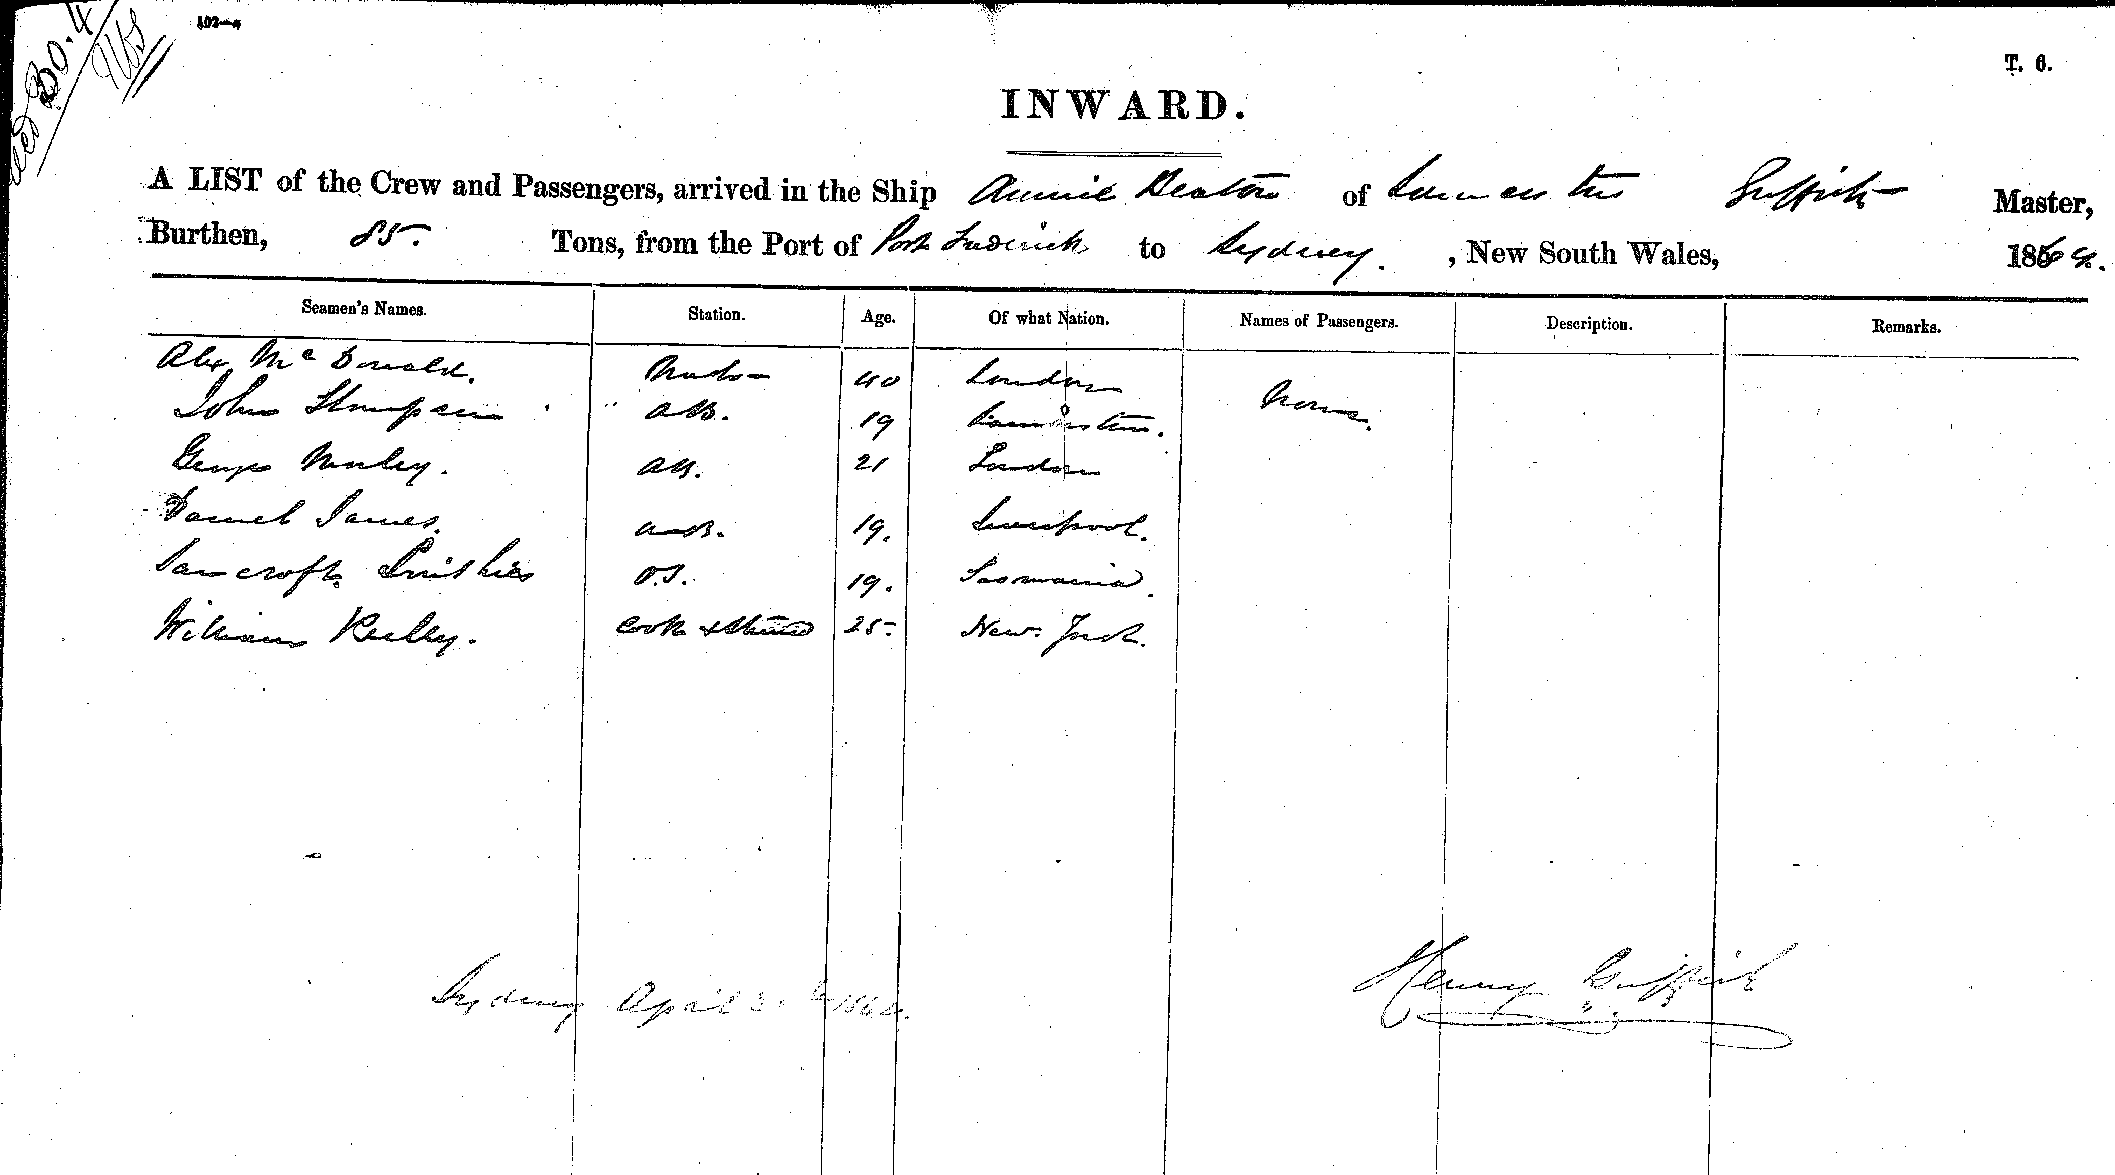 102—4
30.4
T. 6.
INWARD.
A LIST of the Crew and Passengers, arrived in the Ship Annie Beaton of Launceston Griffith Master,
Burthen, 85. Tons, from the Port of Port Frederick to Sydney. , New South Wales, 1864.
Seamen's Names. Station. Age. Of what Nation. Names of Passengers. Description. Remarks.
Alex Mc Donald. Mate 40 London None.
John Thompson A.B. 19 Launceston.
George Morley. AB. 21 London
Daniel James. A.B. 19. Liverpool.
Bancroft Smithies O.S. 19. Tasmania.
William Reilly. Cook & Steward 25 New York.
Sydney April 1864. Henry Griffith